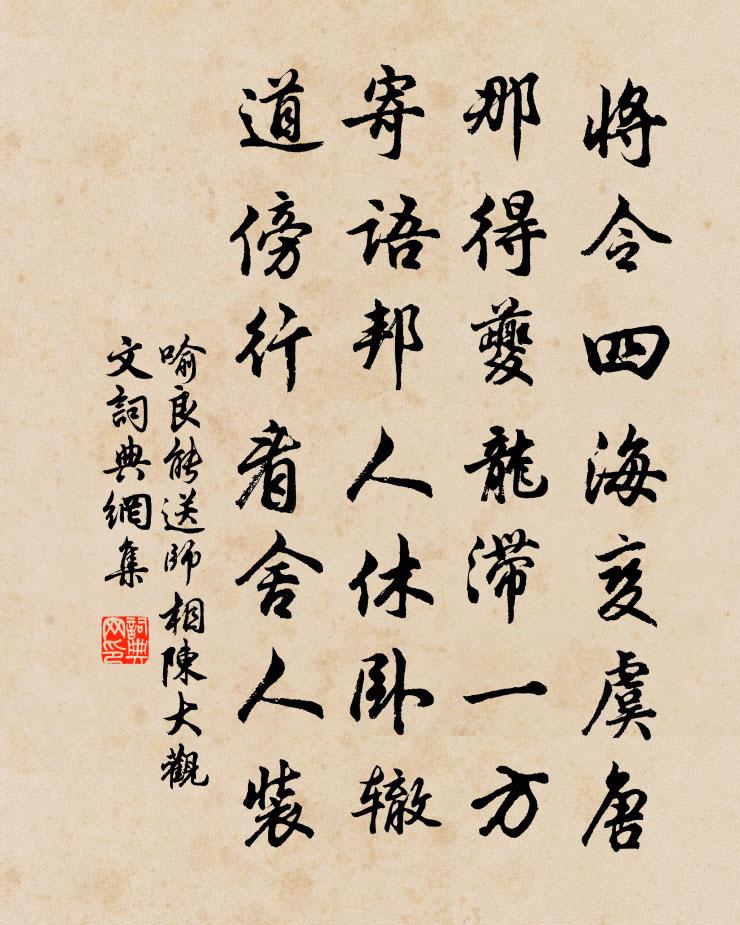 將令四海变虞唐
那得夔龍滯一方
寄語邦人休卧辙
道傍行看舍人装
喻良能送師相陳大觀
文詞典網集
詞典網印